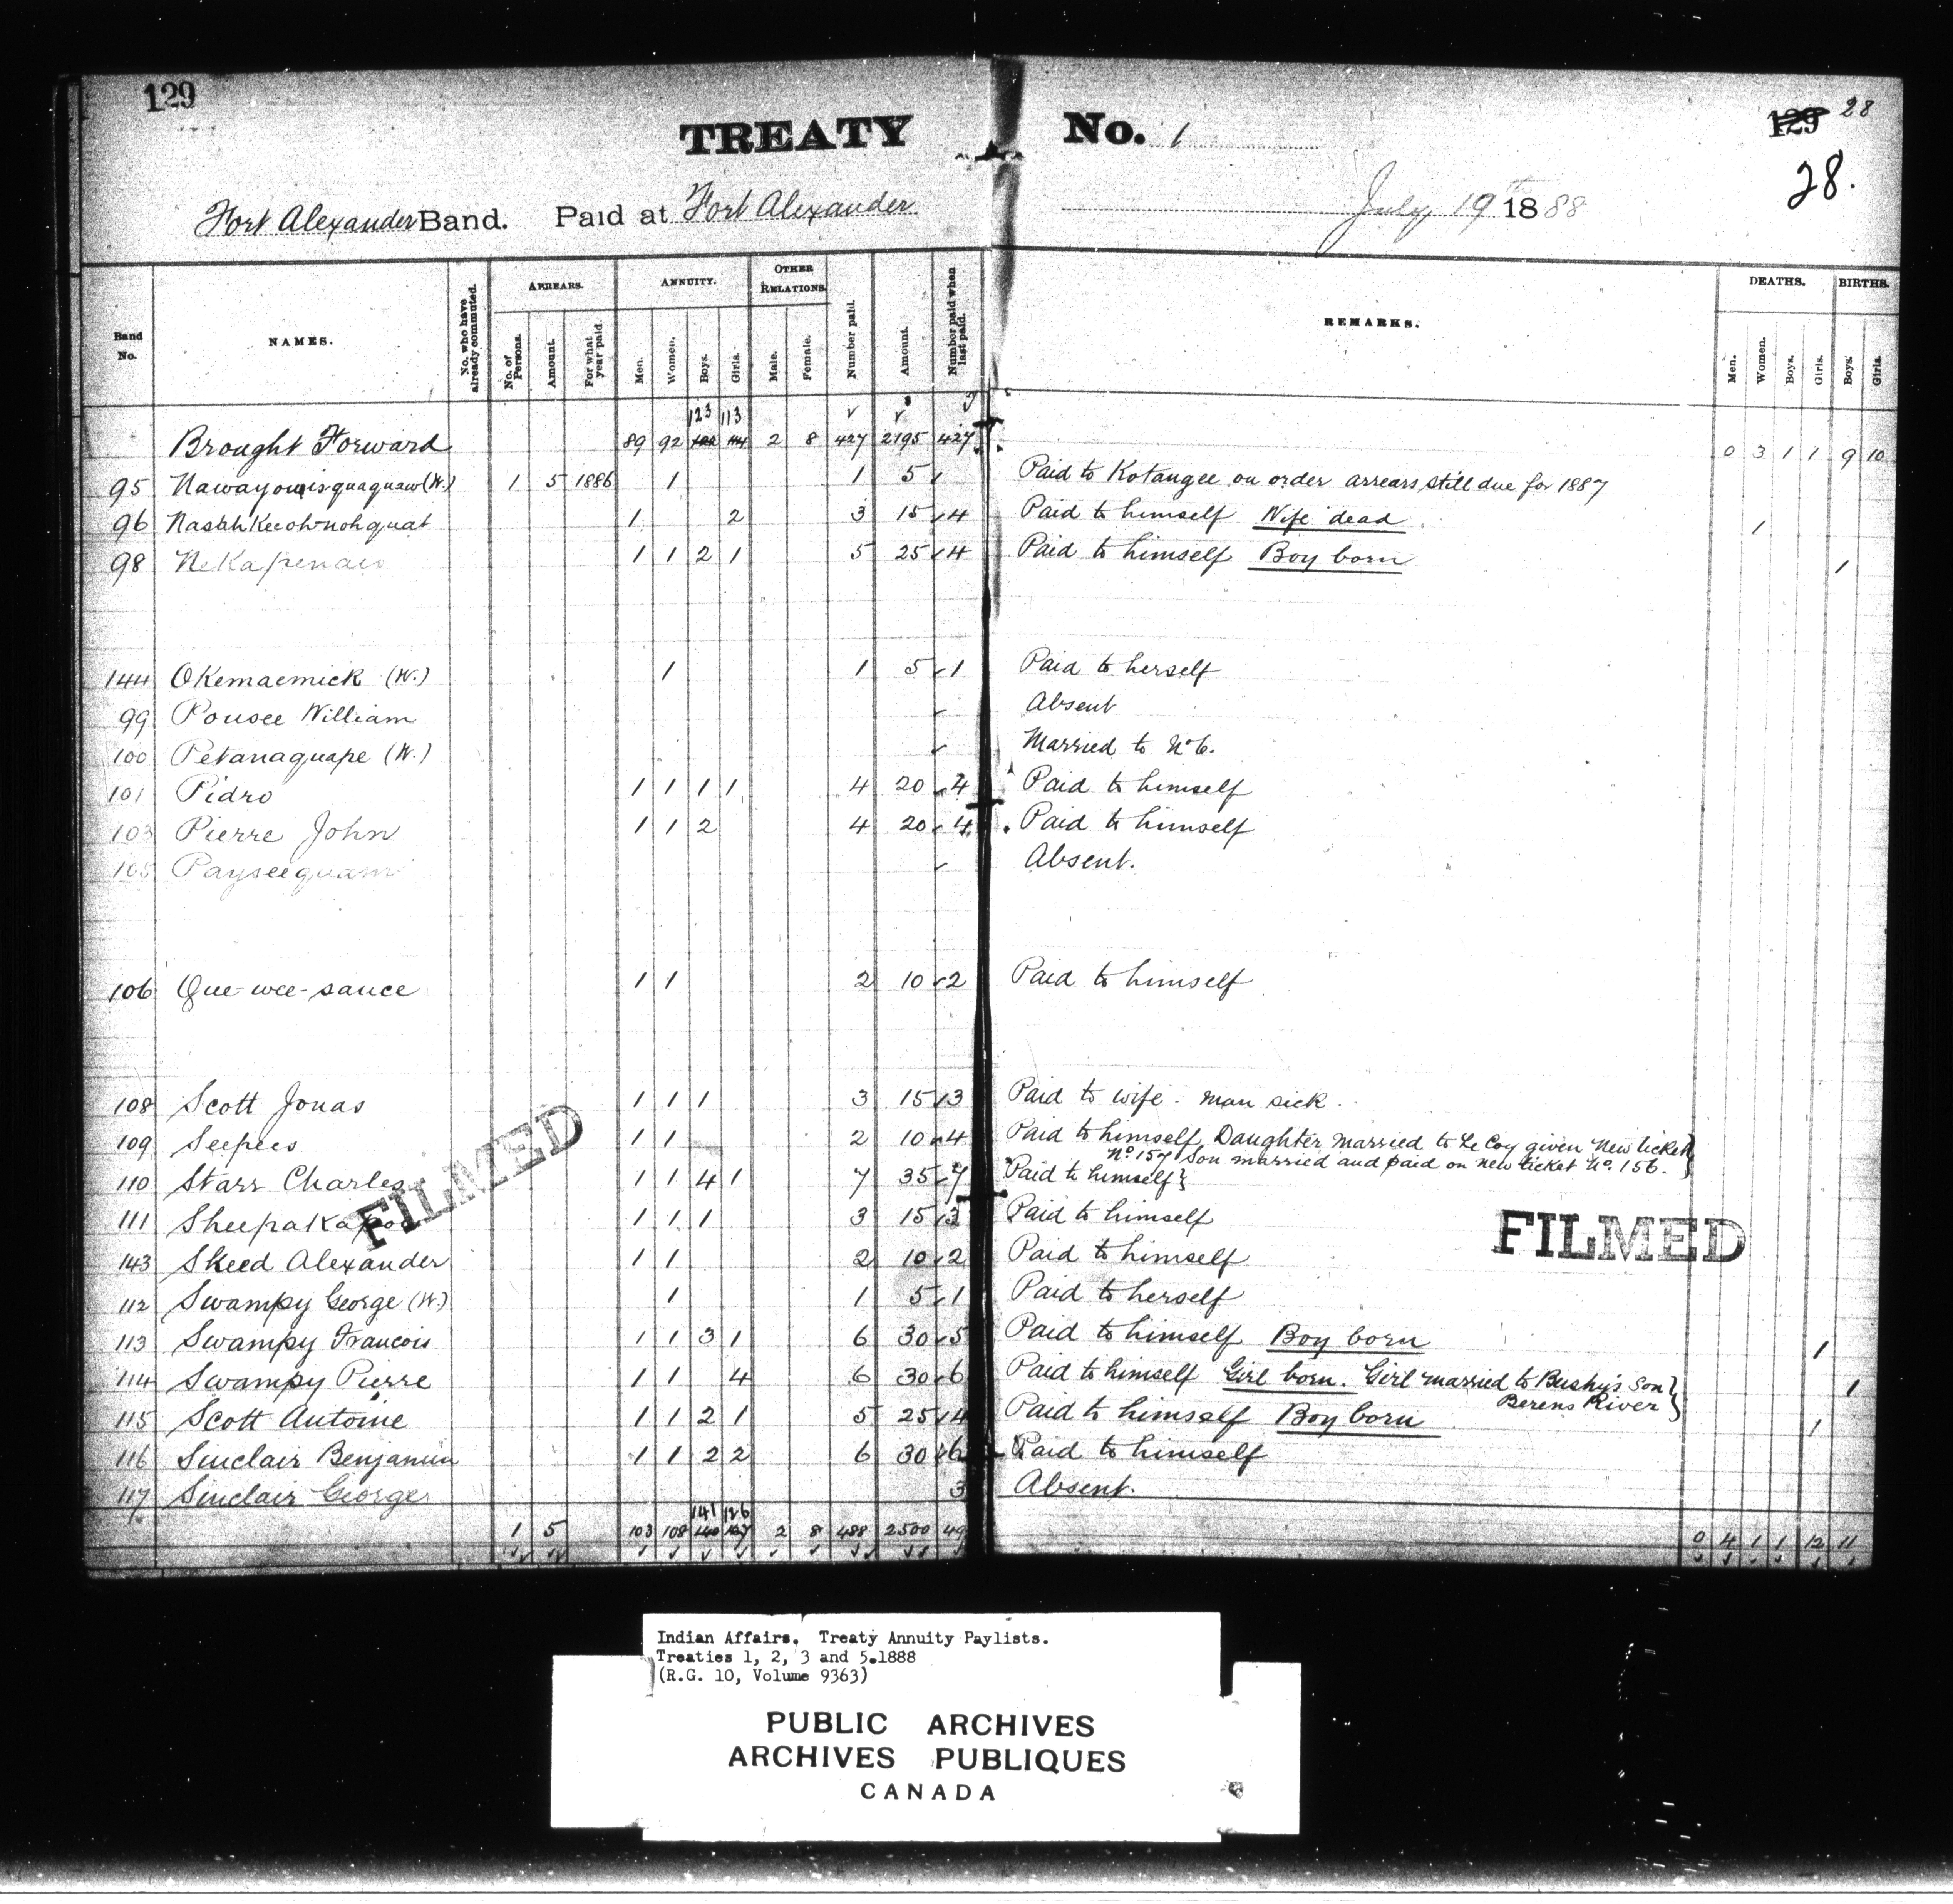 129
TREATY No. 1
129 28
28.
Fort Alexander Band. Paid at Fort Alexander July 19 1888
Band No. NAMES. No. who have already commuted. ARREARS. No. of Persons. Amount. For what year paid. ANNUITY. Men. Women. Boys. Girls. OTHER RELATIONS. Male. Female. Number paid. Amount. Number paid when last paid. REMARKS. DEATHS. Men. Women. Boys. Girls. BIRTHS. Boys. Girls.
123 113
Brought Forward 89 92 122 114 2 8 427 2195 427 0 3 1 1 9 10
95 (W.) 1 5 1886 1 1 5 Paid to Kotangee on order arrears still due for 1887
96 1 2 3 15 4 Paid to himself Wife dead 1
98 Nekapenaw 1 1 2 1 5 25 4 Paid to himself Boy born 1
144 Okemaemick (W.) 1 1 5 1 Paid to herself
99 Pousee William Absent
100 Petanaquape (W.) Married to No 6.
101 Pidro 1 1 1 1 4 20 4 Paid to himself
103 Pierre John 1 1 2 4 20 4 Paid to himself
105 Payseequam Absent.
106 Que-wee-sance 1 1 2 10 2 Paid to himself
108 Scott Jonas 1 1 1 3 15 3 Paid to wife - man sick.
109 Seepees 1 1 2 10 4 Paid to himself Daughter married to Le Coy given New ticket
No 157 Son married and paid on new ticket No. 156.
110 Starr Charles 1 1 4 1 7 35 7 Paid to himself
111 Sheepakapoo 1 1 1 3 15 3 Paid to himself
143 Skeed Alexander 1 1 2 10 2 Paid to himself
112 Swampy George (W.) 1 1 5 1 Paid to herself
113 Swampy Francois 1 1 3 1 6 30 5 Paid to himself Boy born 1
114 Swampy Pierre 1 1 4 6 30 6 Paid to himself Girl born. Girl married to Bushy's son 1
Berens River
115 Scott Antoine 1 1 2 1 5 25 4 Paid to himself Boy born 1
116 Sinclair Benjamin 1 1 2 2 6 30 6 Paid to himself
117 Sinclair George 3 Absent.
141 126
1 5 103 108 140 127 2 8 488 2500 49 0 4 1 1 12 11
FILMED
FILMED
Indian Affairs. Treaty Annuity Paylists.
Treaties 1, 2, 3 and 5.1888
(R.G. 10, Volume 9363)
PUBLIC ARCHIVES
ARCHIVES PUBLIQUES
CANADA